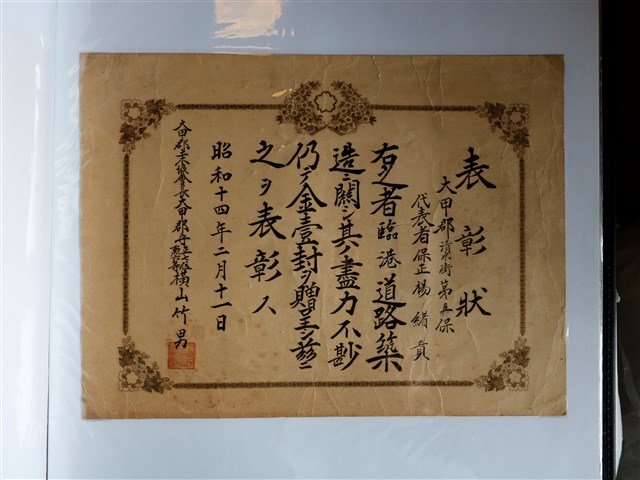 表彰狀
大甲郡清水街第五保
代表者保正楊緒貢
右之者臨港道路築
造ニ關シ其ノ盡力不尠
仍テ金壹封ヲ贈呈シ茲ニ
之ヲ表彰ス
昭和十四年二月十一日
大甲郡 大甲郡守 橫山竹男